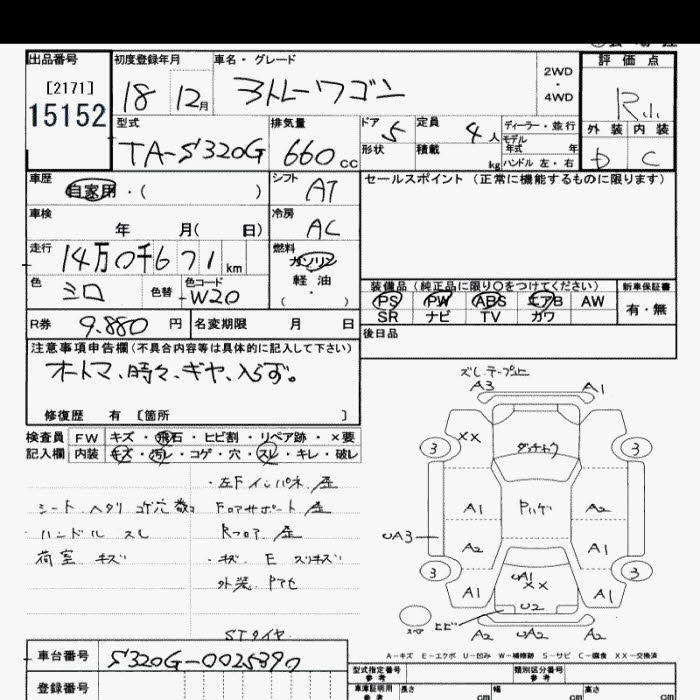 出品番号
[2171]
15152
初度登録年月
18 12月
車名・グレード
ストレーワゴン
2WD
・
4WD
評価点
R
外装 内装
D C
型式
TA-S320G
排気量
660cc
ドア 5
形状
定員 4人
積載 kg
ディーラー・並行
モデル
年式 年
ハンドル 左・右
車歴
自家用・( )
シフト
AT
車検
年 月( 日)
冷房
AC
走行
14万0千671km
燃料
ガソリン
軽油
( ・ )
色
シロ
色替
色コード
W20
R券 9.880円
名変期限 月 日
セールスポイント (正常に機能するものに限ります)
装備品 (純正品に限り○をつけてください)
PS PW ABS エアB AW
SR ナビ TV ガワ
新車保証書
有・無
後日品
注意事項申告欄(不具合内容等は具体的に記入して下さい)
オートマ、時々、ギヤ、入らず。
修復歴 有 〔箇所 〕
検査員 FW キズ・飛石・ヒビ割・リペア跡・×要
記入欄 内装 キズ・汚レ・コゲ・穴・スレ・キレ・破レ
シート ヘタリ
ハンドル スレ
荷室 キズ
・左Fインパネ
Fロアサポート
Rフロア
・キズ E スリキズ
外装
STタイヤ
車台番号 S320G-0025890
登録番号
A3 A1
XX
3 3
A1 A2
UA3
A2 A1
3 3
A1 A1
UA1
XX
U2
ヒビ
A2 UA2 A2
A-キズ E-エクボ U-凹み W-補修跡 S-サビ C-腐食 XX-交換済
型式指定番号
参考
類別区分番号
参考
車庫証明用
参考
長さ cm
幅 cm
高さ cm